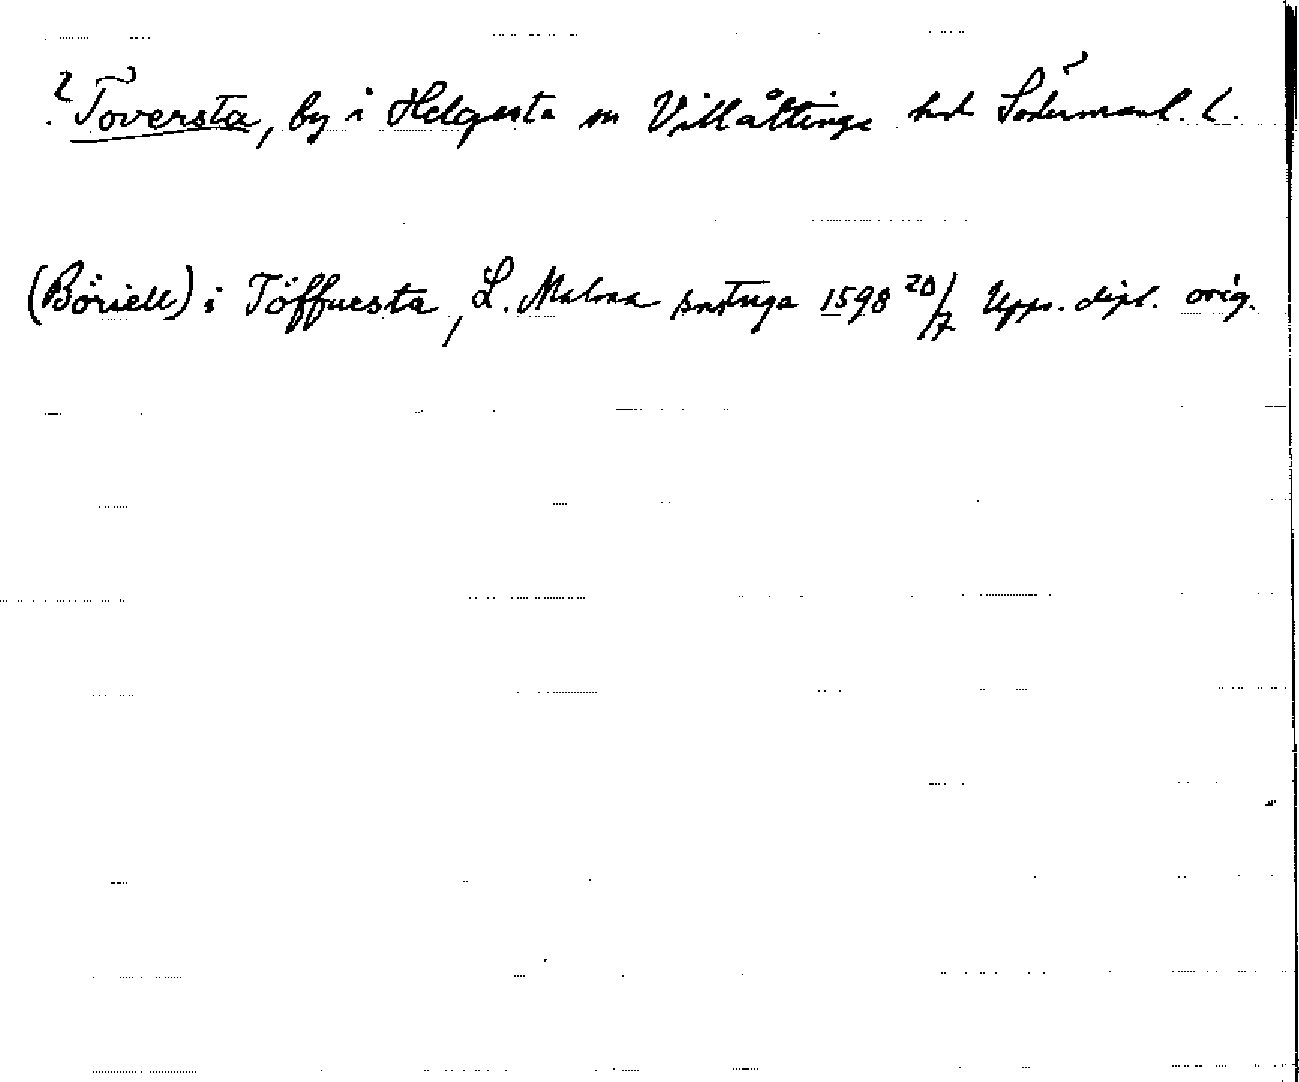 ? Töversta, by i Helgesta sn Villåttinge hd Södermanl. l.
(Böriell) i Töffuesta, L. Malma sn 1598 20/7 Upps. dipl. orig.